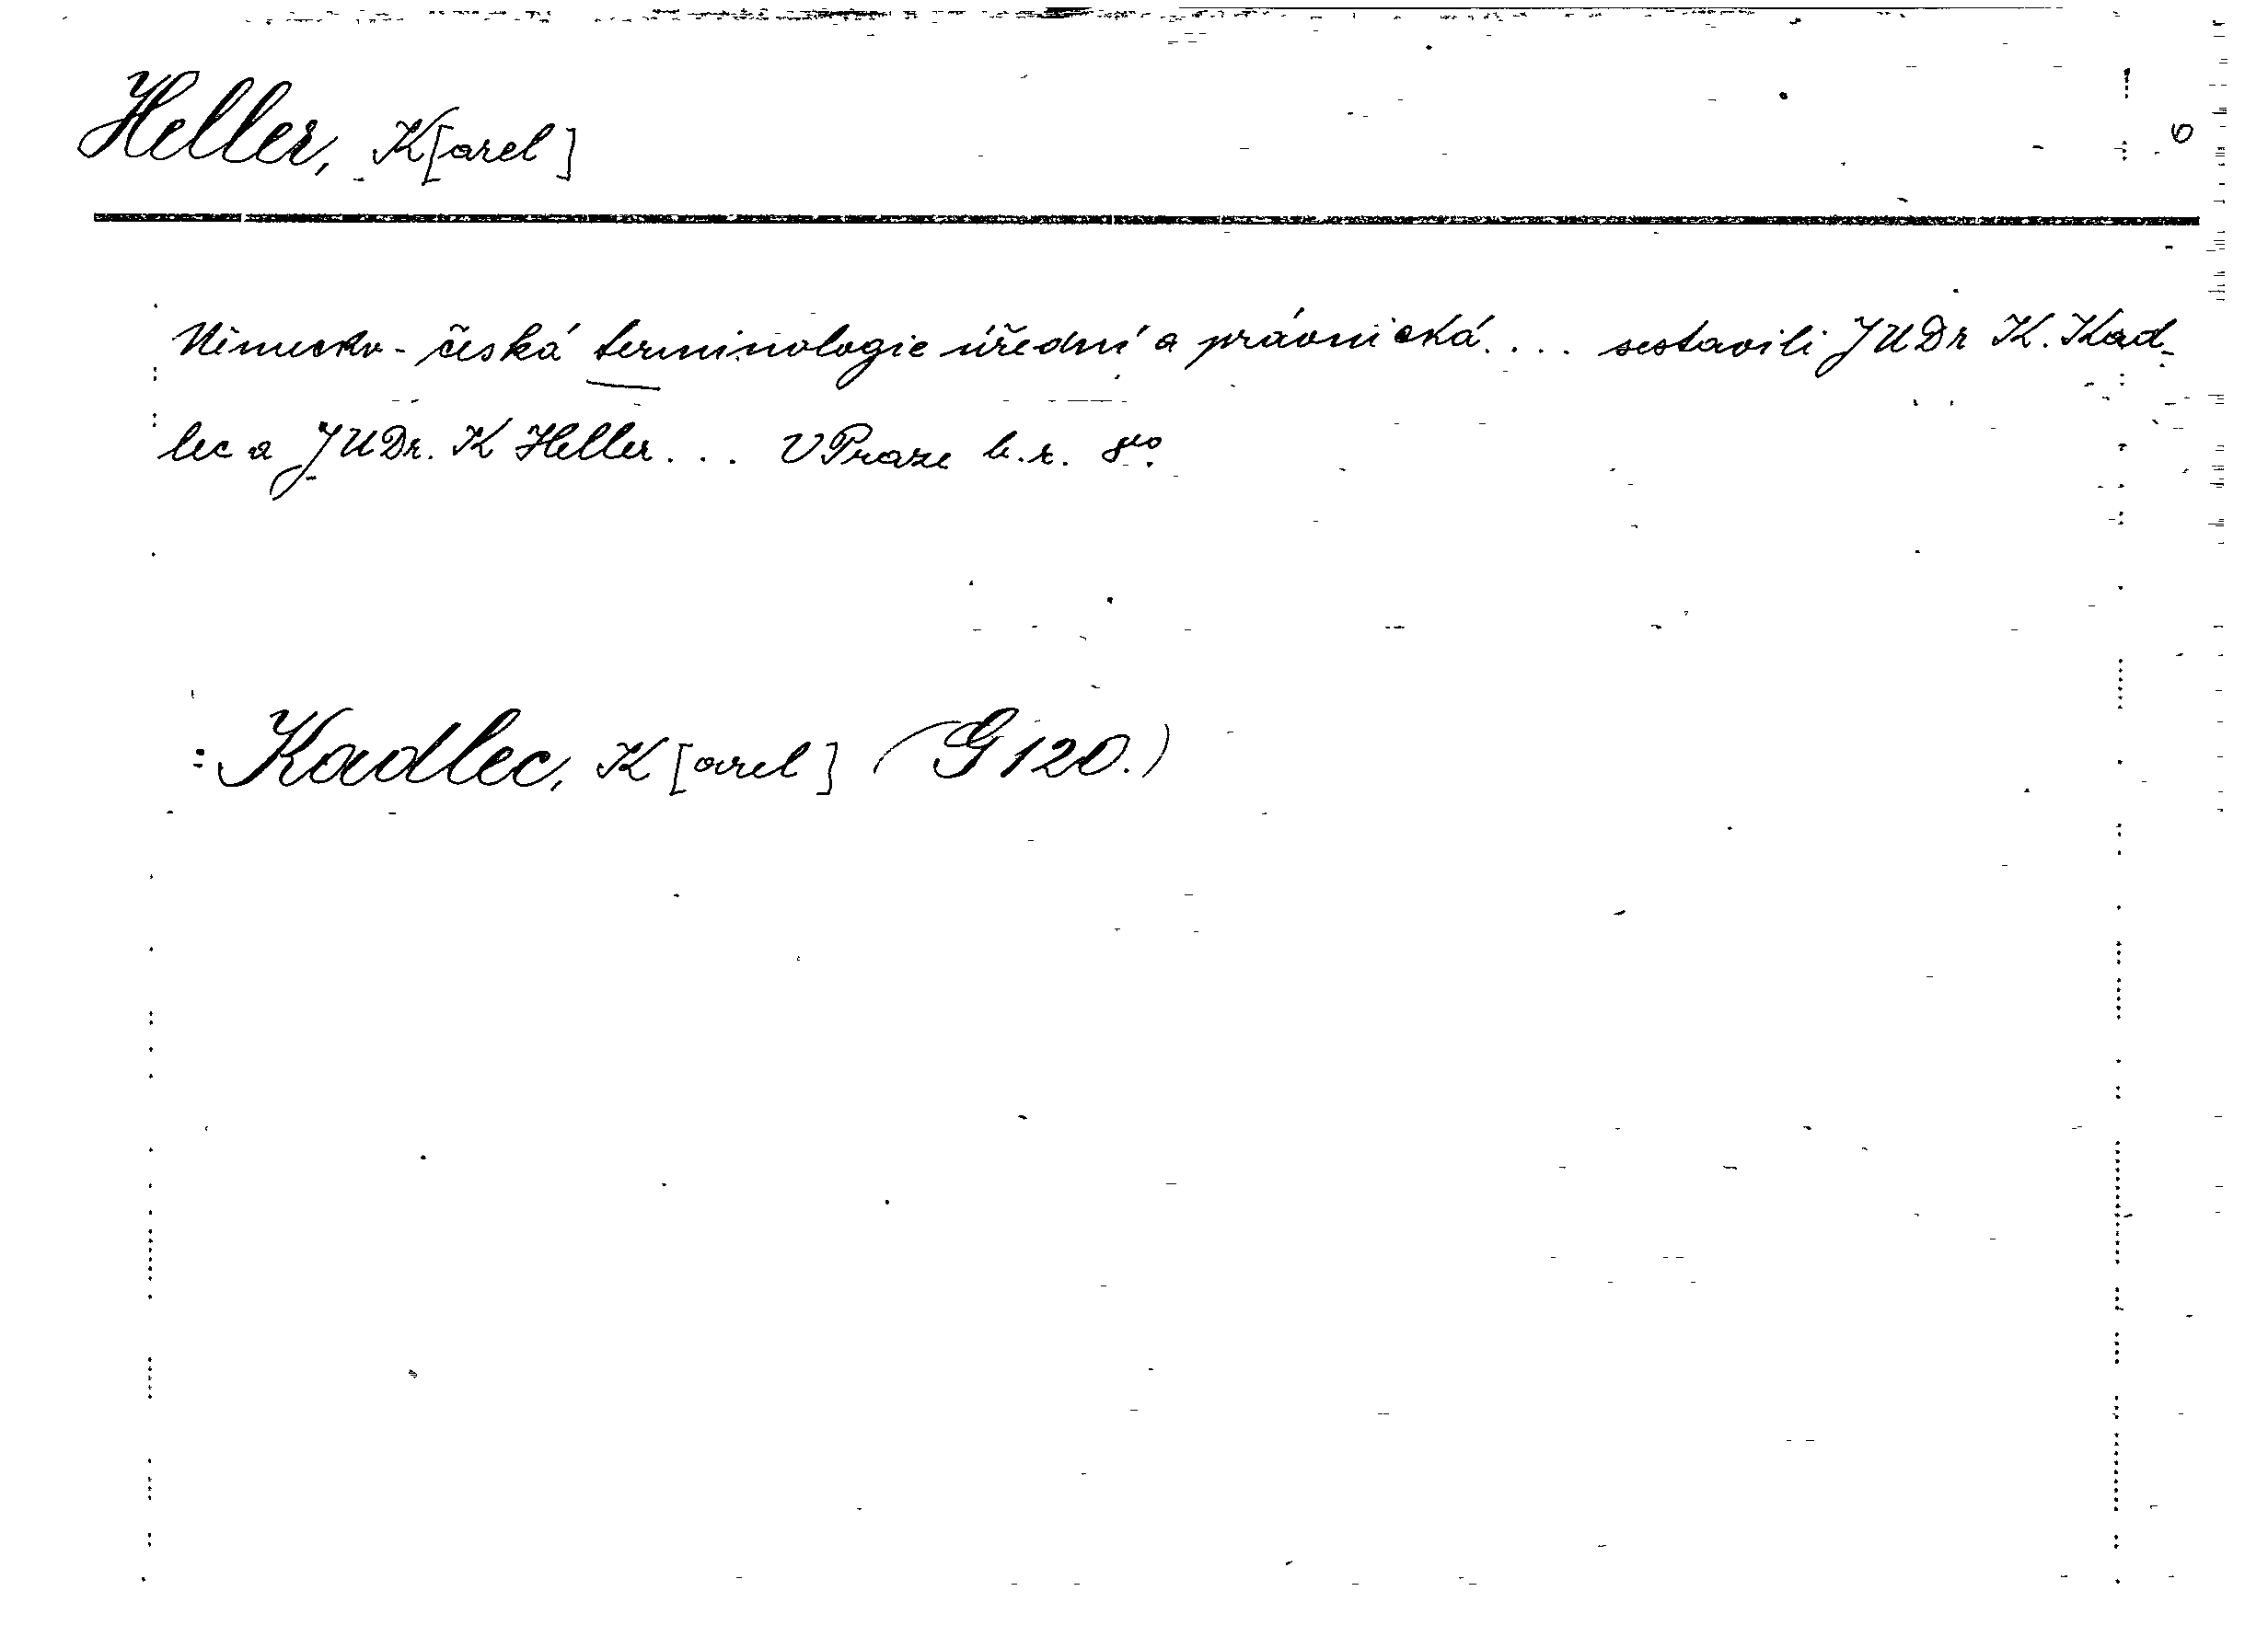 Heller, K[arel]
6
Německo-česká terminologie úřední a právnická.... sestavili JUDr K. Kad-
lec a JUDr. K Heller... V Praze b.r. 8vo.
: Kadlec, K[arel] (G 120.)